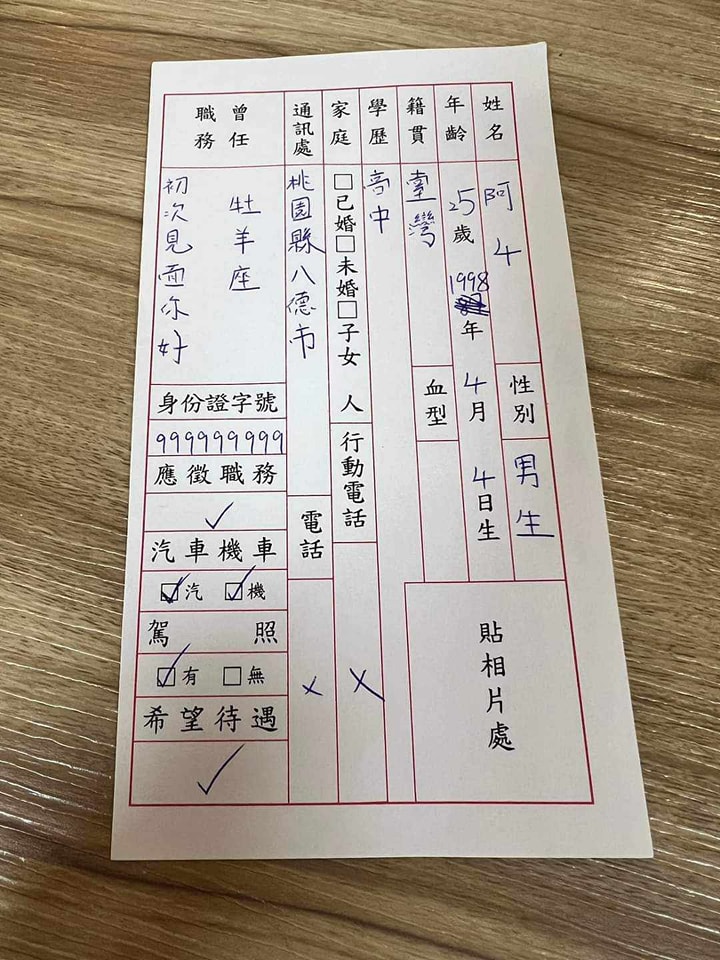 姓名
阿4
性別
男生
年齡
25歲 1998年4月4日生
籍貫
臺灣
血型
貼相片處
學歷
高中
家庭
□已婚□未婚□子女 人
行動電話
X
通訊處
桃園縣八德市
電話
X
曾任職務
牡羊座
初次見面你好
身份證字號
999999999
應徵職務
✓
汽車機車
☑汽 ☑機
駕照
☑有 □無
希望待遇
✓